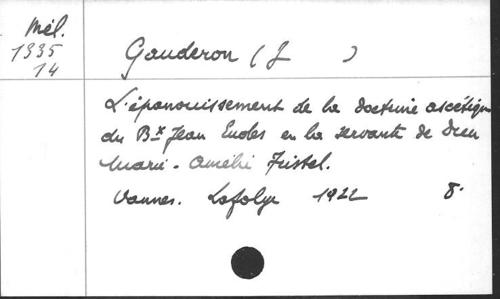 Mél.
1335
14
Gauderon (J )
L'épanouissement de la doctrine ascétique
du Bx Jean Eudes en la servante de Dieu
Marie-Amélie Fristel.
Vannes. Lafolye 1922 8°